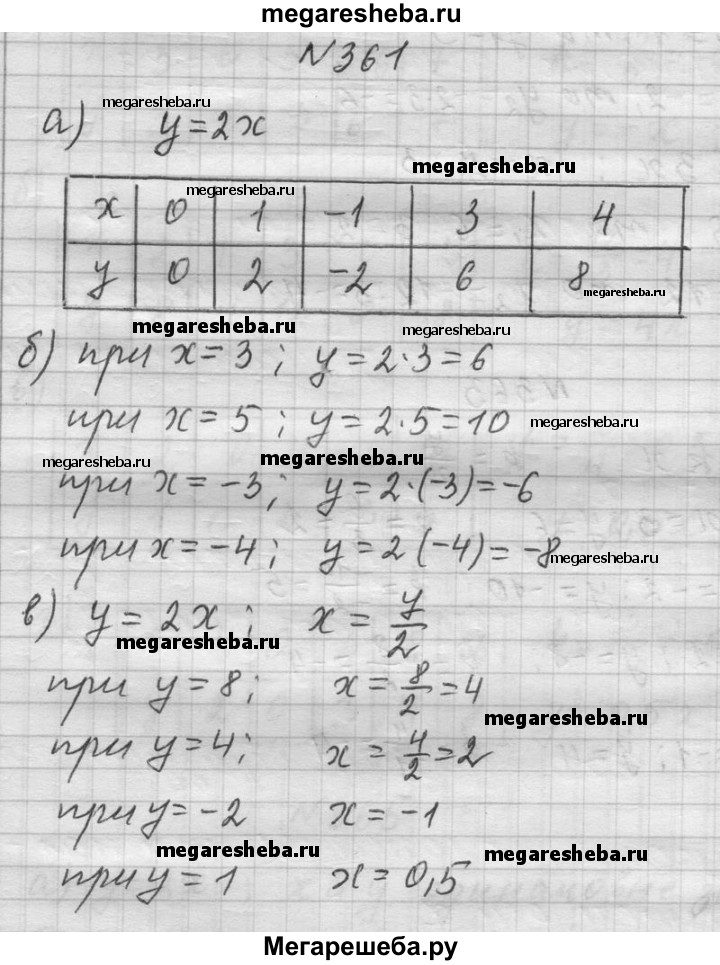 megaresheba.ru
N361
megaresheba.ru
а) y=2x
megaresheba.ru
megaresheba.ru
x 0 1 -1 3 4
y 0 2 -2 6 8
megaresheba.ru
megaresheba.ru megaresheba.ru
б) при x=3; y=2·3=6
при x=5; y=2·5=10 megaresheba.ru
megaresheba.ru megaresheba.ru
при x=-3; y=2·(-3)=-6
при x=-4; y=2(-4)=-8 megaresheba.ru
в) y=2x; x=y/2
megaresheba.ru
при y=8; x=8/2=4
megaresheba.ru
при y=4; x=4/2=2
при y=-2 x=-1
megaresheba.ru megaresheba.ru
при y=1 x=0,5
Мегарешеба.ру